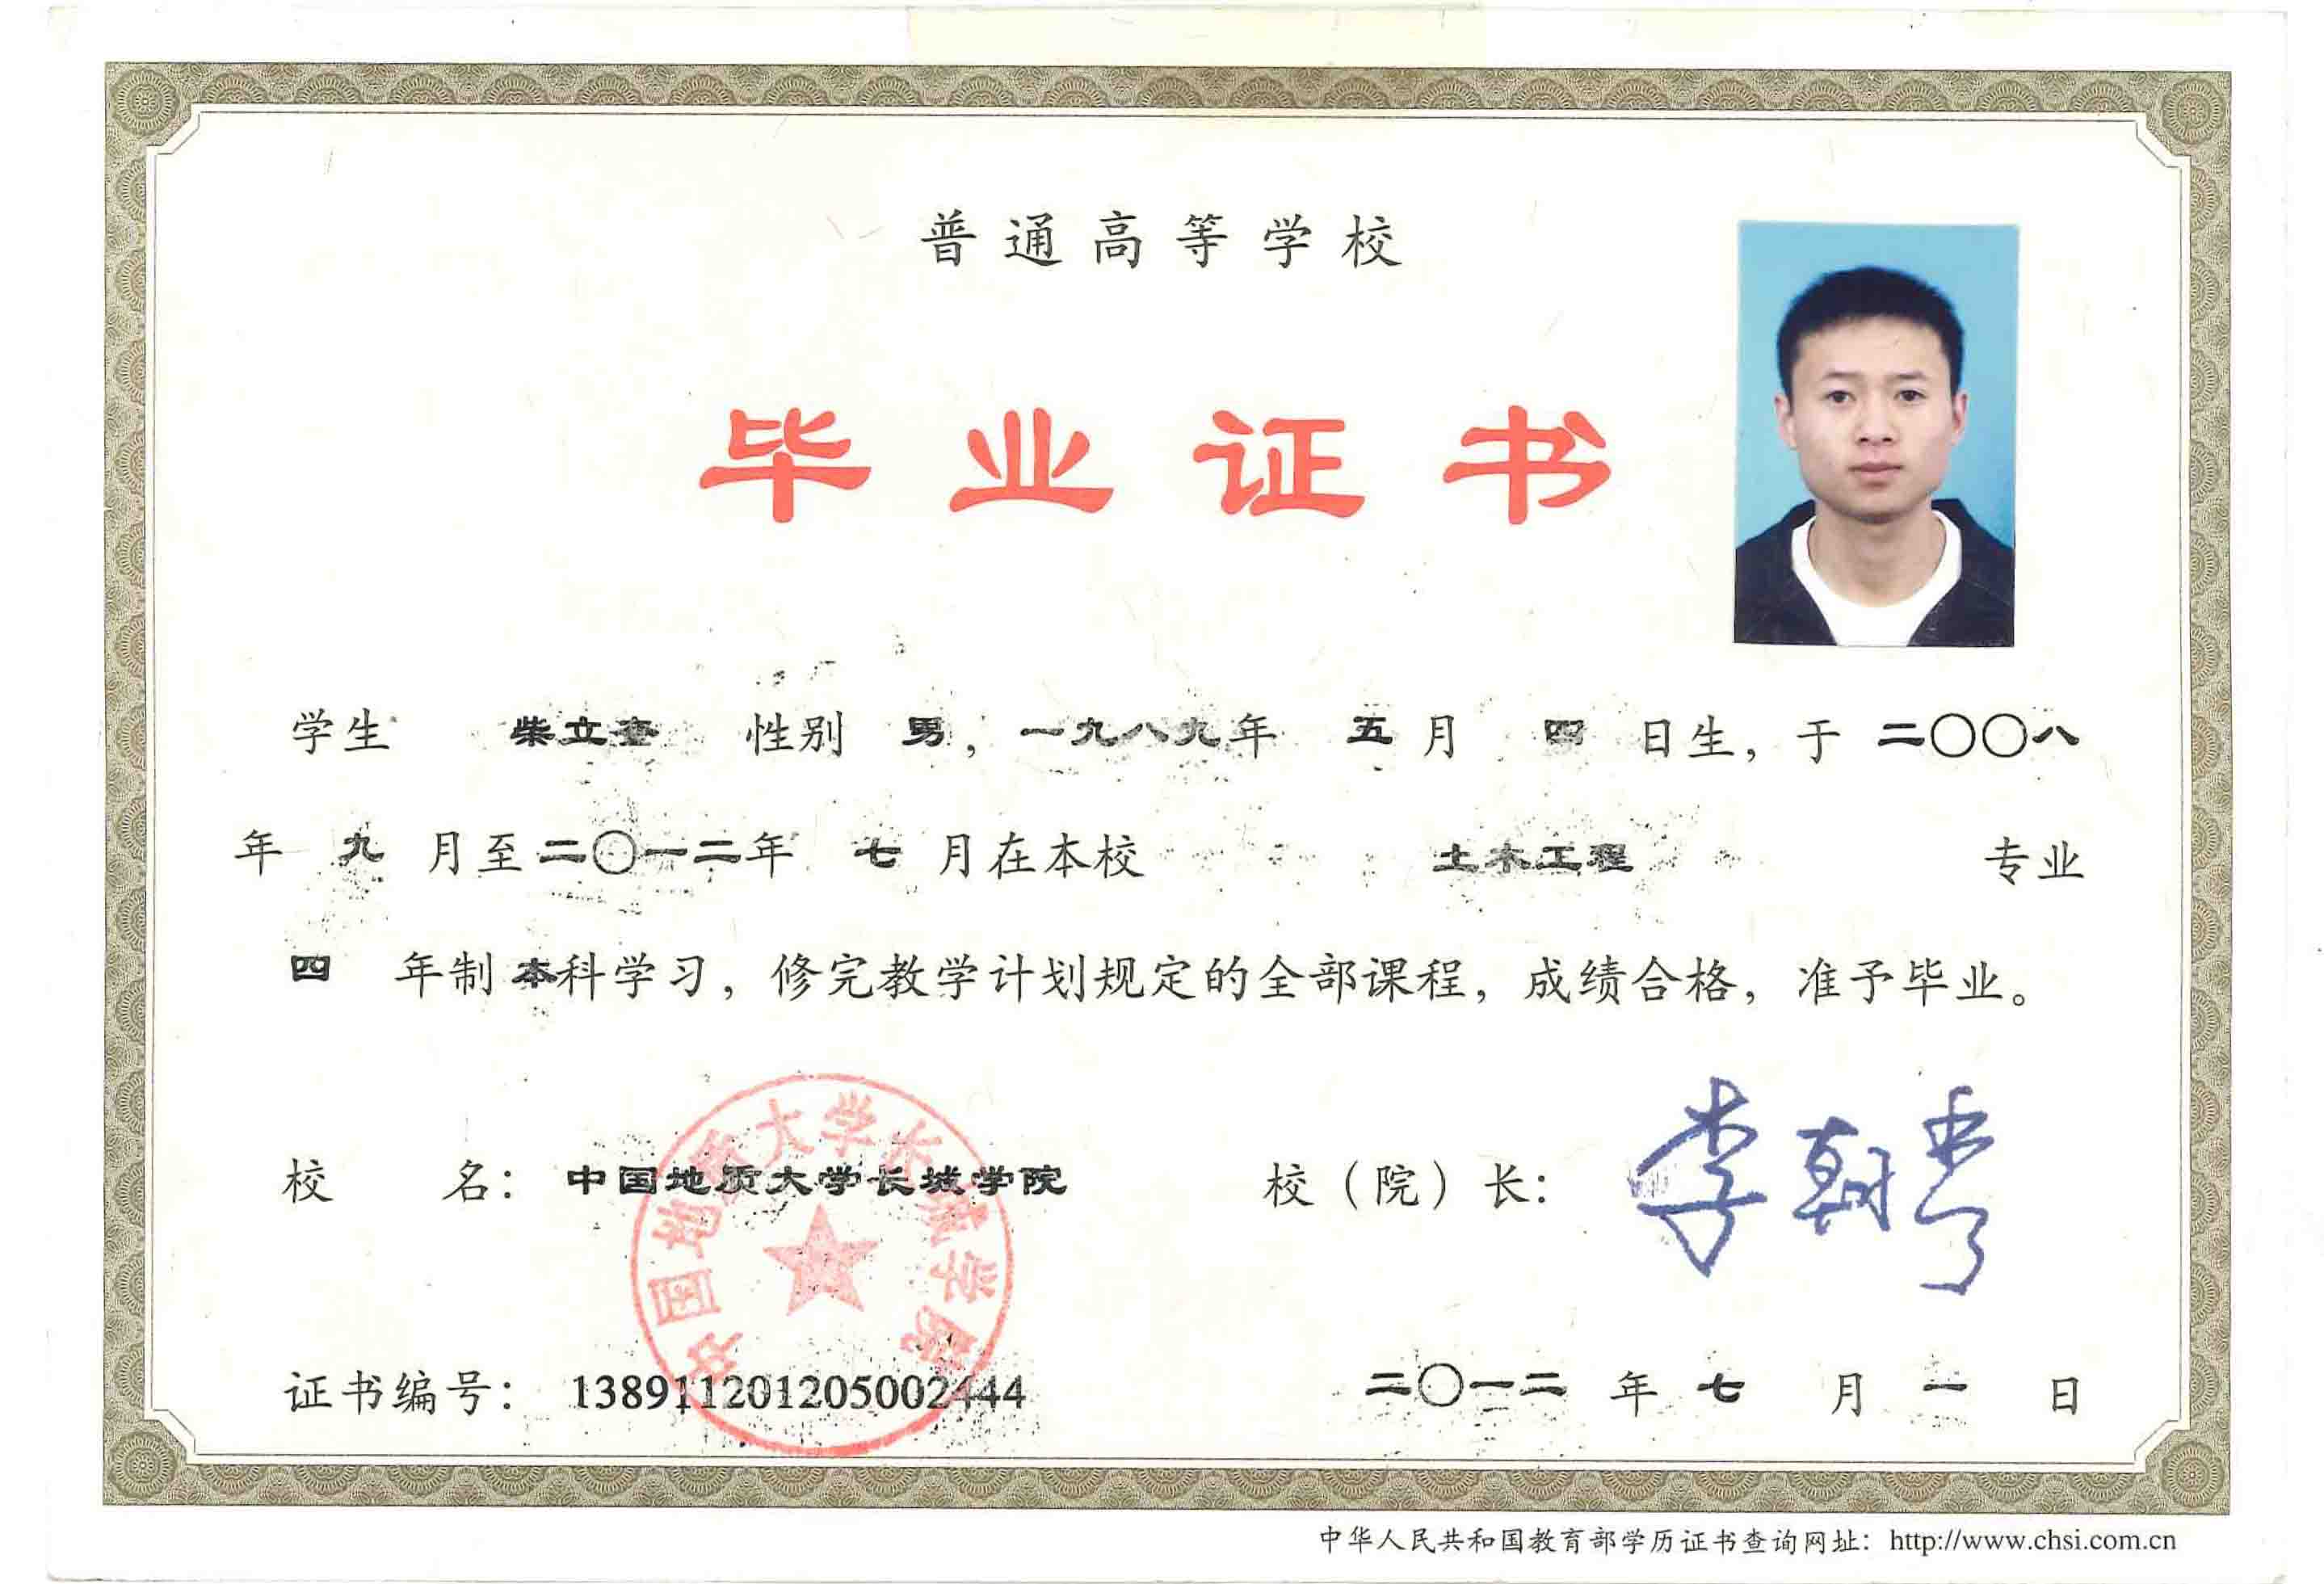 普通高等学校
毕业证书
学生 柴立 性别 男，一九八九年 五月 四 日生，于 二〇〇八
年 九 月至二〇一二年 七 月在本校 土木工程 专业
四 年制本科学习，修完教学计划规定的全部课程，成绩合格，准予毕业。
校 名：中国地质大学长城学院 校（院）长：
中国地质大学长城学院
证书编号：138911201205002444 二〇一二 年 七 月 一 日
中华人民共和国教育部学历证书查询网址：http://www.chsi.com.cn